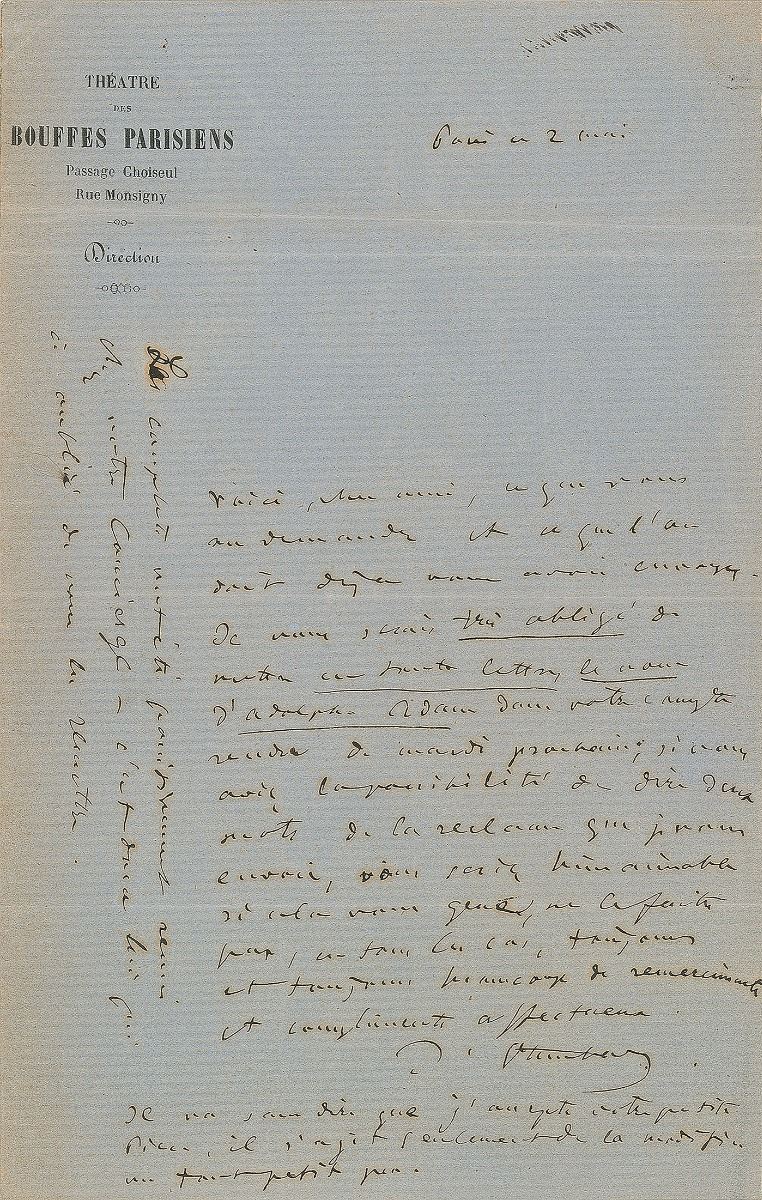 THÉATRE
DES
BOUFFES PARISIENS
Passage Choiseul
Rue Monsigny
Direction
Paris ce 2 mai
Voici, cher ami, ce que vous
me demandez et ce que l'on
doit déjà vous avoir envoyé.
Je vous serais très obligé de
mettre en toute lettre, le nom
d'adolphe Adam dans votre compte
rendu de mardi prochain, si vous
avez la possibilité de dire deux
mots de la reclame que je vous
envoie, vous serez bien aimable
si cela vous gene, ne le faite
pas, en tous les cas, toujours
et toujours beaucoup de remerciments
et compliments affectueux
J. Offenbach
Il va sans dire que j'accepte votre petite
Pièce, il s'agit seulement de la modifier
un tout petit peu.
Les couplets ont été parfaitement remis
chez notre Concierge – c'est donc lui qui
à oublié de vous les remettre.